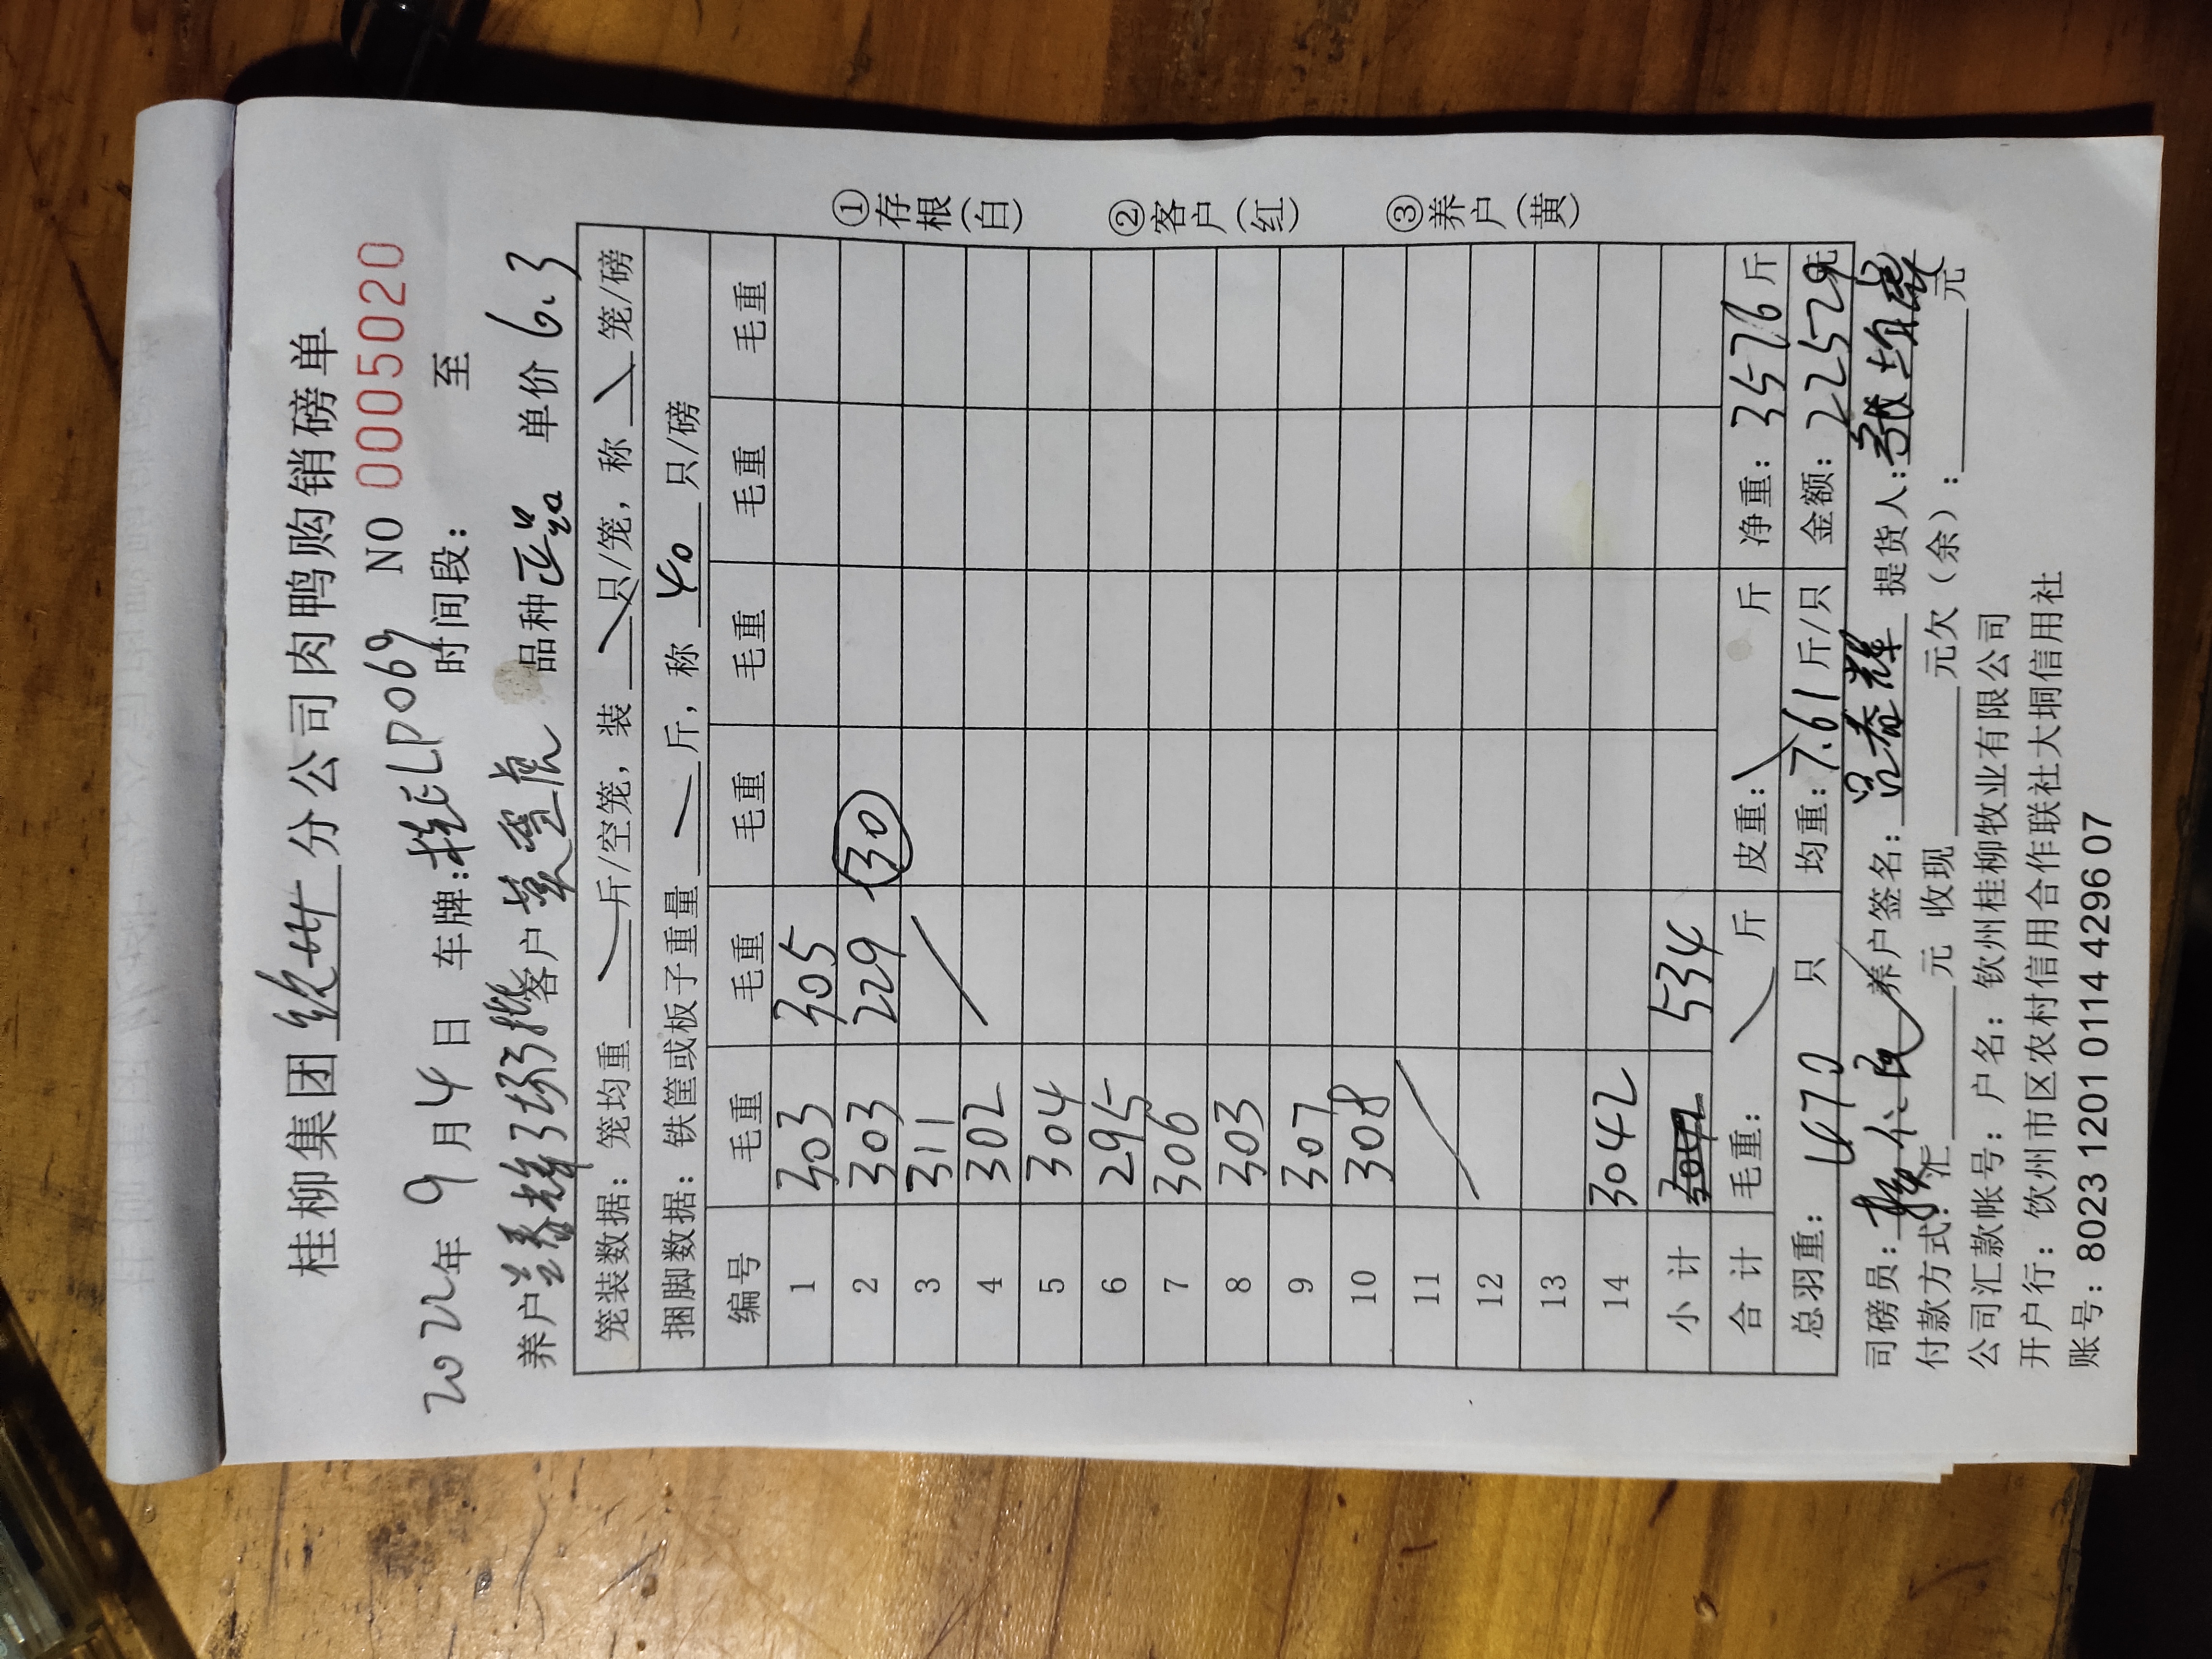 桂柳集团 钦州 分公司肉鸭购销磅单
2022年 9月4日 车牌:桂ELP069 NO 0005020
时间段: 至
养户 客户 品种 正品 单价 6.3
笼装数据: 笼均重 斤/空笼, 装 只/笼, 称 笼/磅
捆脚数据: 铁筐或板子重量 斤, 称 40 只/磅
编号 毛重 毛重 毛重 毛重 毛重 毛重
1 303 305
2 303 229 (30)
3 311
4 302
5 304
6 295
7 306
8 303
9 307
10 308
11
12
13
14 3042
小计 534
合计 毛重: 斤 皮重: 斤 净重: 3576 斤
总羽重: 470 只 均重: 7.61 斤/只 金额: 22529 元
司磅员: 养户签名: 提货人:
付款方式: 汇 元 收现 元欠(余): 元
公司汇款帐号: 户名: 钦州桂柳牧业有限公司
开户行: 钦州市区农村信用合作联社大垌信用社
账号: 8023 1201 0114 4296 07
①存根(白)
②客户(红)
③养户(黄)